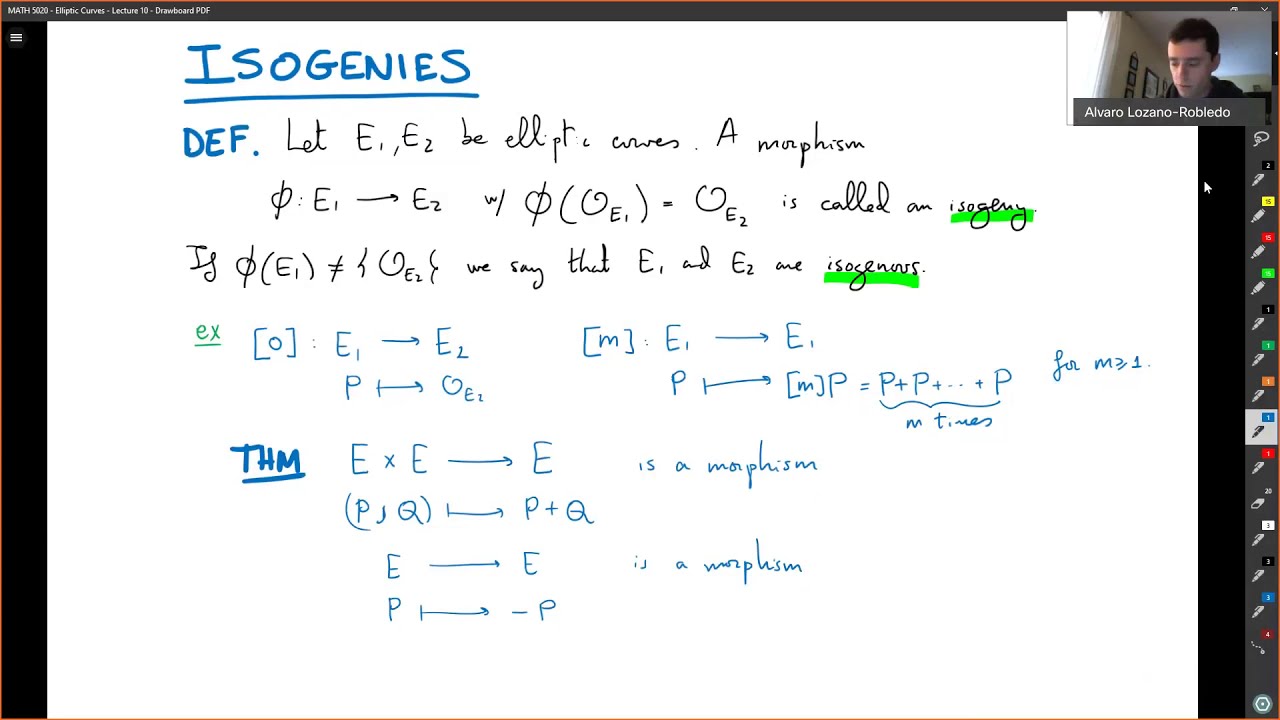 MATH 5020 - Elliptic Curves - Lecture 10 - Drawboard PDF
Alvaro Lozano-Robledo
ISOGENIES
DEF. Let E₁, E₂ be elliptic curves. A morphism
ϕ: E₁ ⟶ E₂ w/ ϕ(O_{E₁}) = O_{E₂} is called an isogeny.
If ϕ(E₁) ≠ {O_{E₂}} we say that E₁ and E₂ are isogenous.
ex [0] : E₁ ⟶ E₂ [m] : E₁ ⟶ E₁
P ⟼ O_{E₂} P ⟼ [m]P = P+P+...+P for m ≥ 1.
m times
THM E × E ⟶ E is a morphism
(P, Q) ⟼ P + Q
E ⟶ E is a morphism
P ⟼ -P
2
15
15
15
1
1
1
1
1
20
3
3
3
4